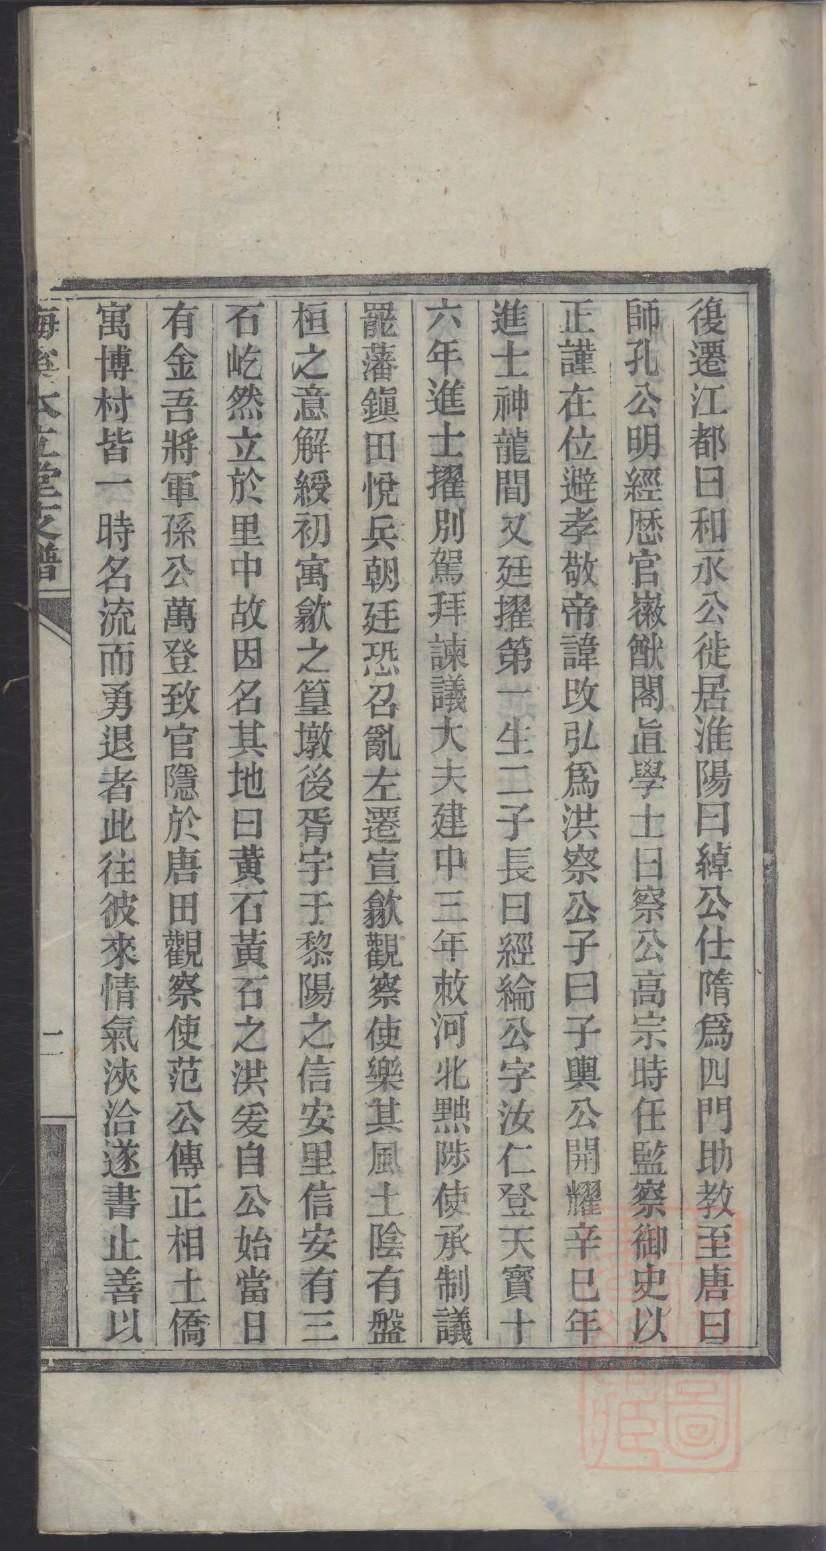 復遷江都曰和永公徙居淮陽曰綽公仕隋爲四門助教至唐曰
師孔公明經歷官徽猷閣直學士曰察公高宗時任監察御史以
正謹在位避孝敬帝諱攺弘爲洪察公子曰子輿公開耀辛巳年
進士神龍間又廷擢第一生二子長曰經綸公字汝仁登天寶十
六年進士擢別駕拜諫議大夫建中三年敕河北黜陟使承制議
罷藩鎮田悅兵朝廷恐召亂左遷宣歙觀察使樂其風土陰有盤
桓之意解綬初寓歙之篁墩後胥宇于黎陽之信安里信安有三
石屹然立於里中故因名其地曰黄石黃石之洪爰自公始當日
有金吾將軍孫公萬登致官隱於唐田觀察使范公傳正相土僑
寓博村皆一時名流而勇退者此往彼來情氣浹洽遂書止善以
堂支譜
二